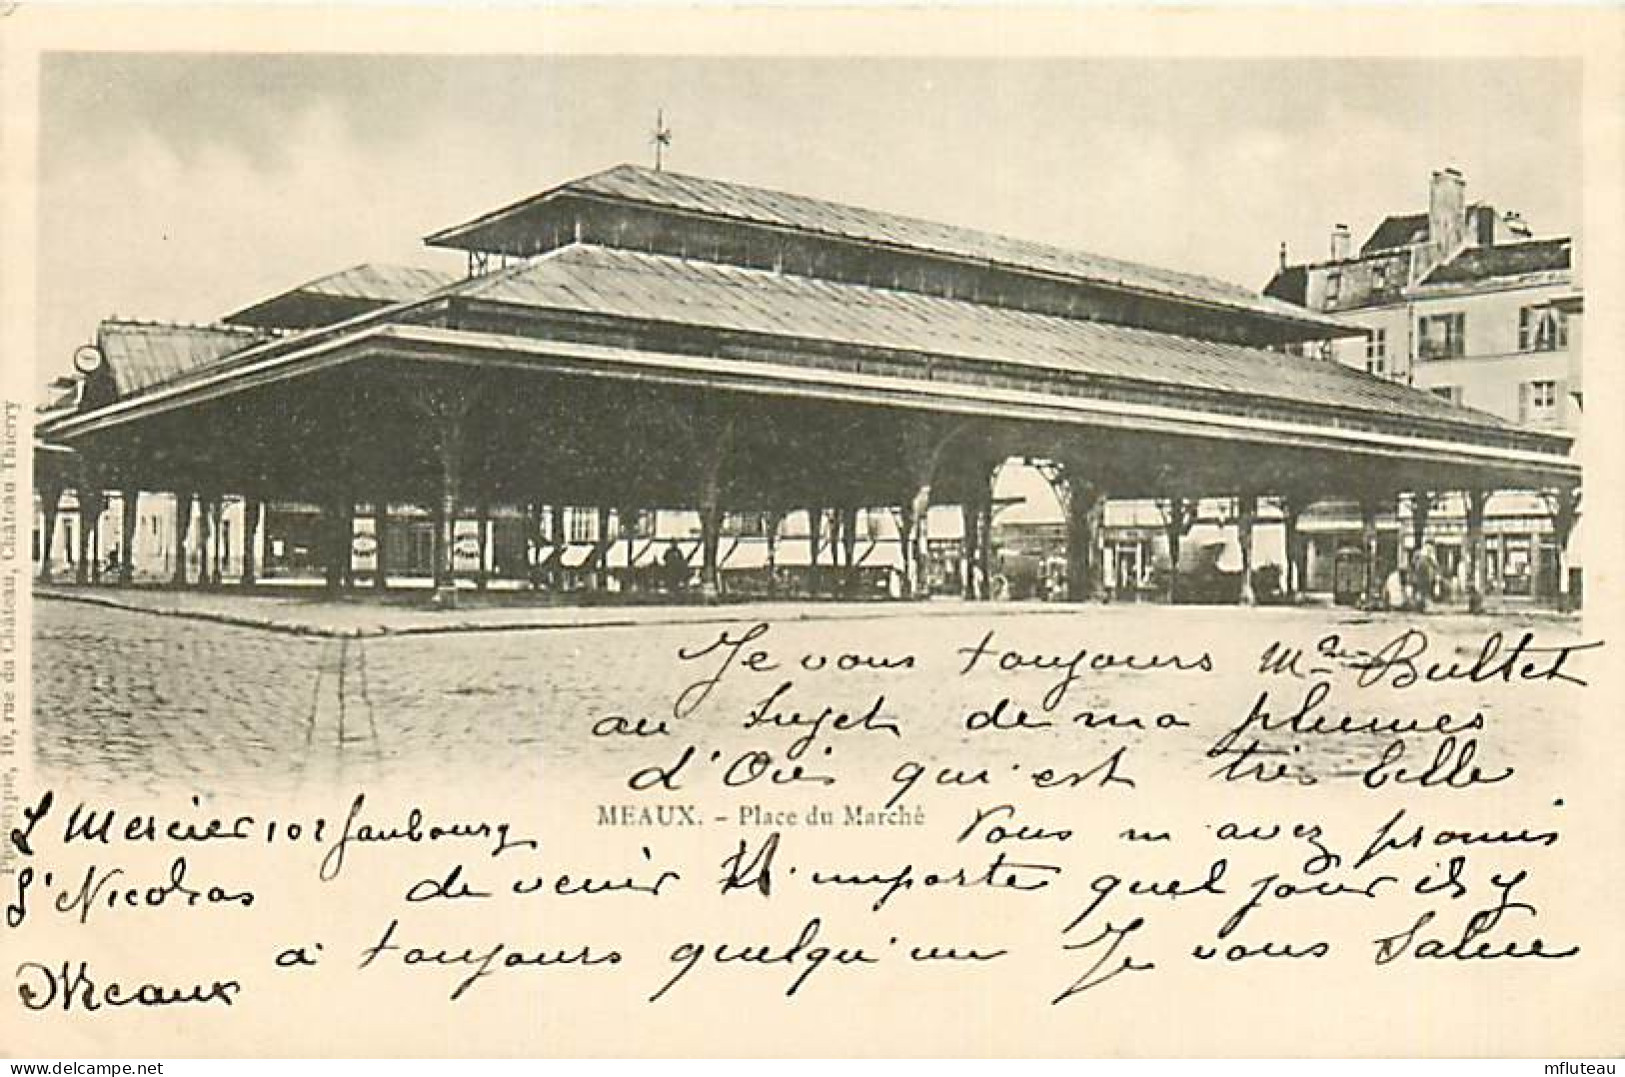 Phototypie, 10, rue du Château, Château Thierry
Je vous toujours Mme Bultet
au Sujet de ma plumes
d'Oies qui est très belle
MEAUX. - Place du Marché
Vous m avez promis
de venir N. importe quel jour il y
à toujours quelqu'un Je vous Salue
L Mercier 102 faubourg
St Nicolas
Meaux
mfluteau